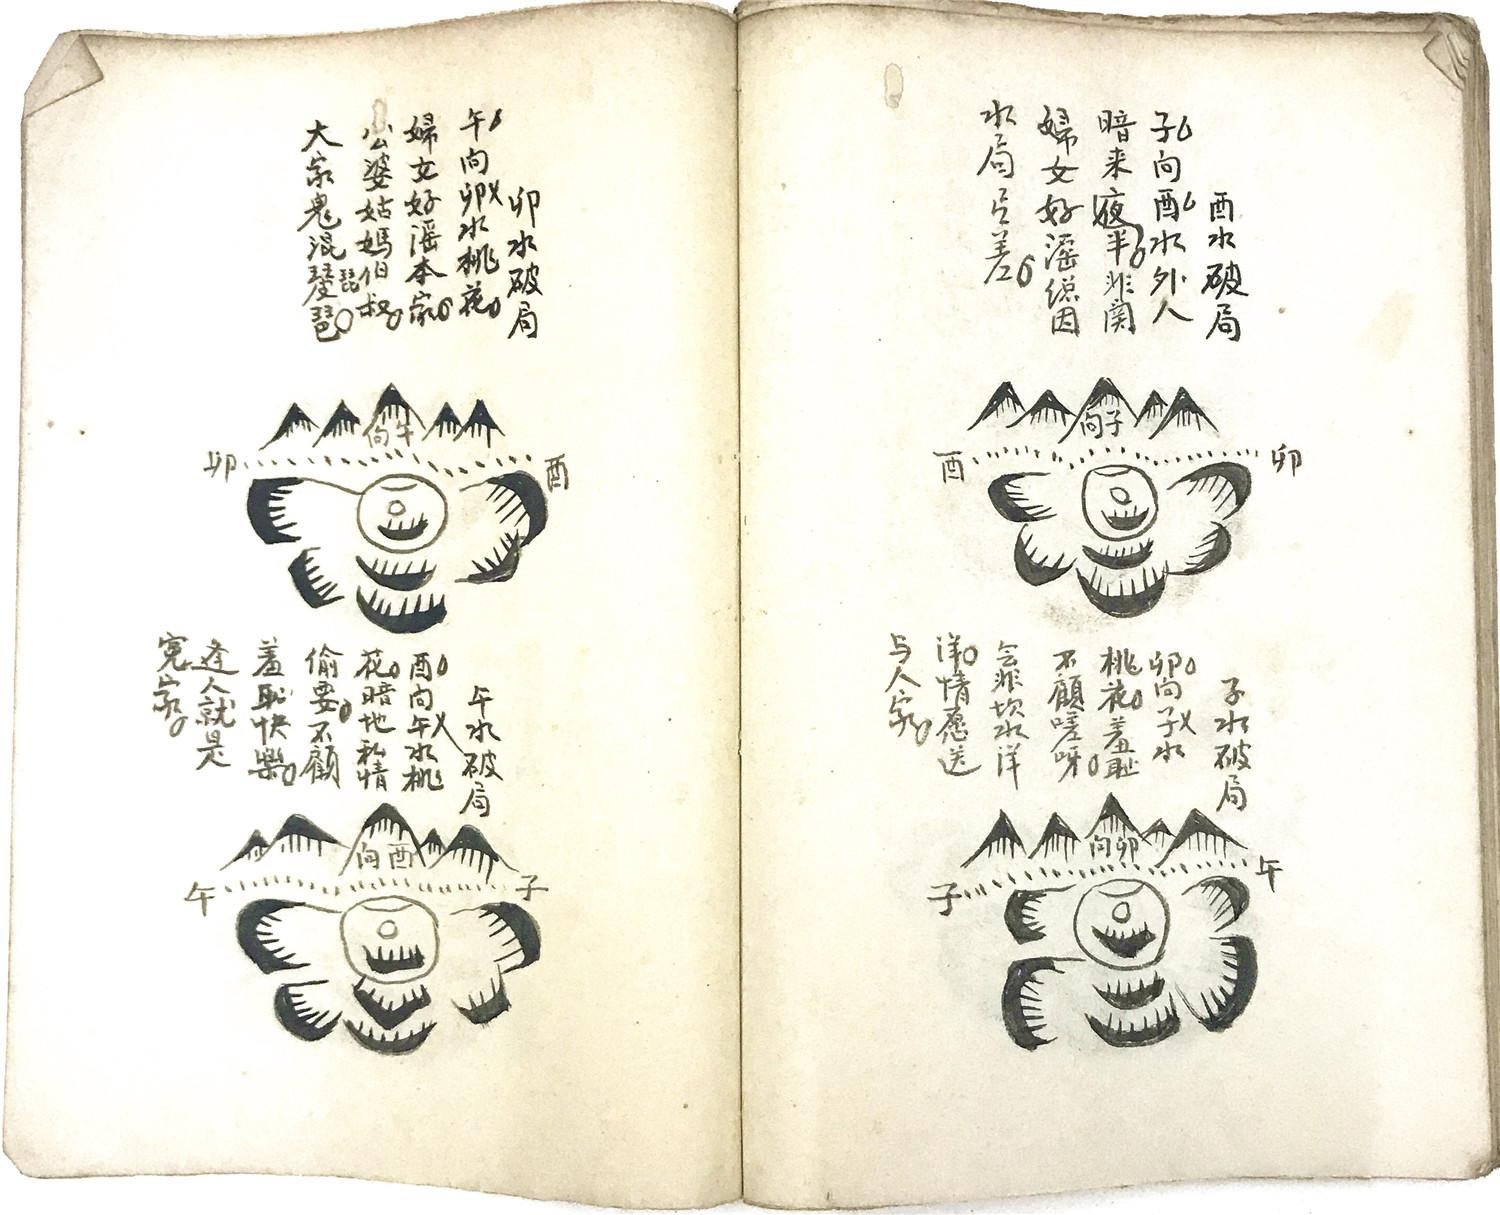 酉水破局
子向酉水外人
暗来夜半非関
婦女好滛總因
水局呂差
向子
酉
卯
子水破局
卯向子水
桃花羞耻
不顧嗟呀
会非坎水洋
洋情愿送
与人家
向卯
子
午
卯水破局
午向卯水桃花
婦女好滛本家
公婆姑媽伯叔
大家鬼混琵琶
向午
卯
酉
午水破局
酉向午水桃
花暗地私情
偷要不顧
羞恥快樂
逢人就是
寃家
向酉
午
子